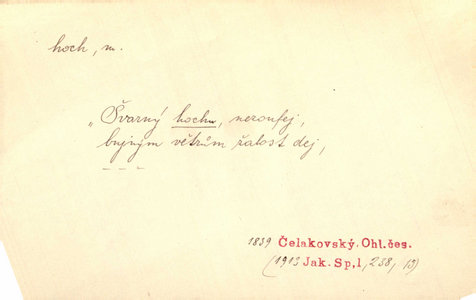 hoch, m.
„Švarný hochu, nezoufej,
bujným větrům žalost dej,
– – –
1839 Čelakovský. Ohl. čes.
(1913 Jak. Sp, 1, 238,